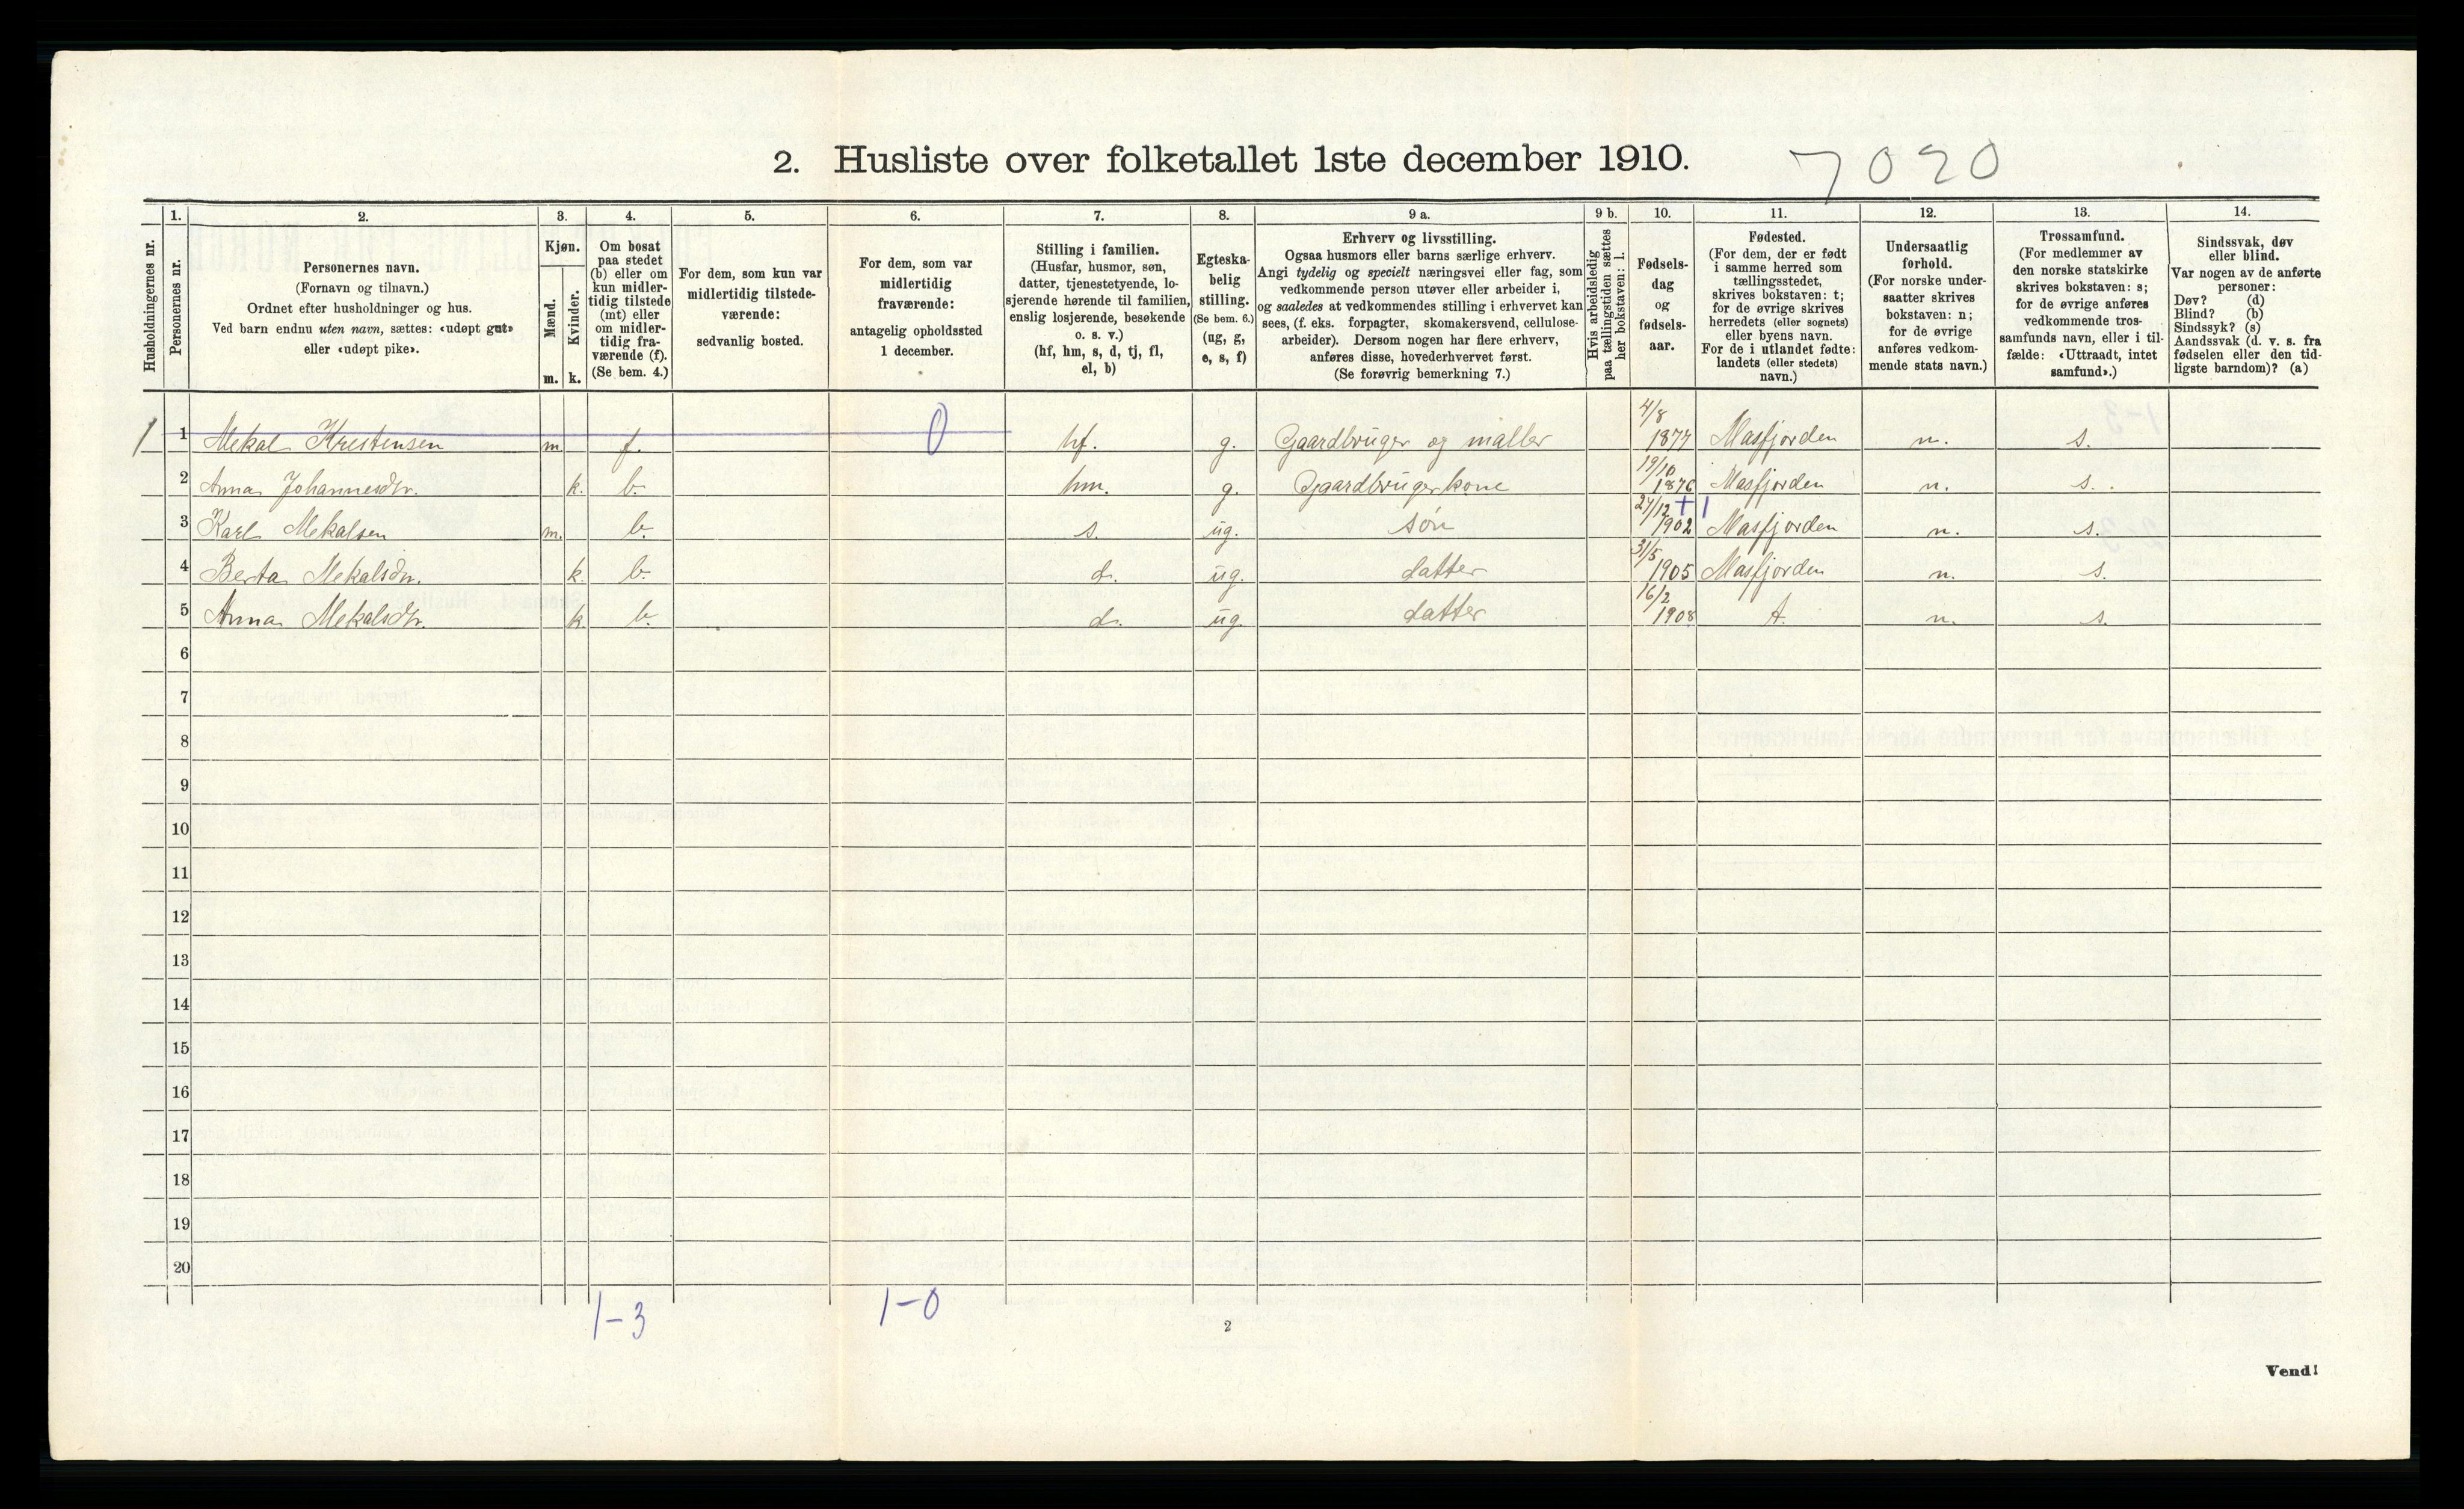 2. Husliste over folketallet 1ste december 1910.
7020
Husholdningernes nr.
1.
Personernes nr.
2.
Personernes navn.
(Fornavn og tilnavn.)
Ordnet efter husholdninger og hus.
Ved barn endnu uten navn, sættes: «udøpt gut»
eller «udøpt pike».
3.
Kjøn.
Mænd.
Kvinder.
m. k.
4.
Om bosat
paa stedet
(b) eller om
kun midler-
tidig tilstede
(mt) eller
om midler-
tidig fra-
værende (f).
(Se bem. 4.)
5.
For dem, som kun var
midlertidig tilstede-
værende:
sedvanlig bosted.
6.
For dem, som var
midlertidig
fraværende:
antagelig opholdssted
1 december.
7.
Stilling i familien.
(Husfar, husmor, søn,
datter, tjenestetyende, lo-
sjerende hørende til familien,
enslig losjerende, besøkende
o. s. v.)
(hf, hm, s, d, tj, fl,
el, b)
8.
Egteska-
belig
stilling.
(Se bem. 6.)
(ug, g,
e, s, f)
9 a.
Erhverv og livsstilling.
Ogsaa husmors eller barns særlige erhverv.
Angi tydelig og specielt næringsvei eller fag, som
vedkommende person utøver eller arbeider i,
og saaledes at vedkommendes stilling i erhvervet kan
sees, (f. eks. forpagter, skomakersvend, cellulose-
arbeider). Dersom nogen har flere erhverv,
anføres disse, hovederhvervet først.
(Se forøvrig bemerkning 7.)
9 b.
Hvis arbeidsledig
paa tællingstiden sættes
her bokstaven: l.
10.
Fødsels-
dag
og
fødsels-
aar.
11.
Fødested.
(For dem, der er født
i samme herred som
tællingsstedet,
skrives bokstaven: t;
for de øvrige skrives
herredets (eller sognets)
eller byens navn.
For de i utlandet fødte:
landets (eller stedets)
navn.)
12.
Undersaatlig
forhold.
(For norske under-
saatter skrives
bokstaven: n;
for de øvrige
anføres vedkom-
mende stats navn.)
13.
Trossamfund.
(For medlemmer av
den norske statskirke
skrives bokstaven: s;
for de øvrige anføres
vedkommende tros-
samfunds navn, eller i til-
fælde: «Uttraadt, intet
samfund».)
14.
Sindssvak, døv
eller blind.
Var nogen av de anførte
personer:
Døv? (d)
Blind? (b)
Sindssyk? (s)
Aandssvak (d. v. s. fra
fødselen eller den tid-
ligste barndom)? (a)
1 1 Mekal Kristensen m. f. 0 hf. g. Gaardbruger og maller 4/8 1877 Masfjorden n. s.
2 Anna Johannesdtr. k. b. hm. g. Gaardbrugerkone 19/10 1876 Masfjorden n. s.
3 Karl Mekalsen m. b. s. ug. søn 27/12 1902 + 1 Masfjorden n. s.
4 Berta Mekalsdtr. k. b. d. ug. datter 31/5 1905 Masfjorden n. s.
5 Anna Mekalsdtr. k. b. d. ug. datter 16/2 1908 t. n. s.
6
7
8
9
10
11
12
13
14
15
16
17
18
19
20
1-3 1-0
2
Vend!